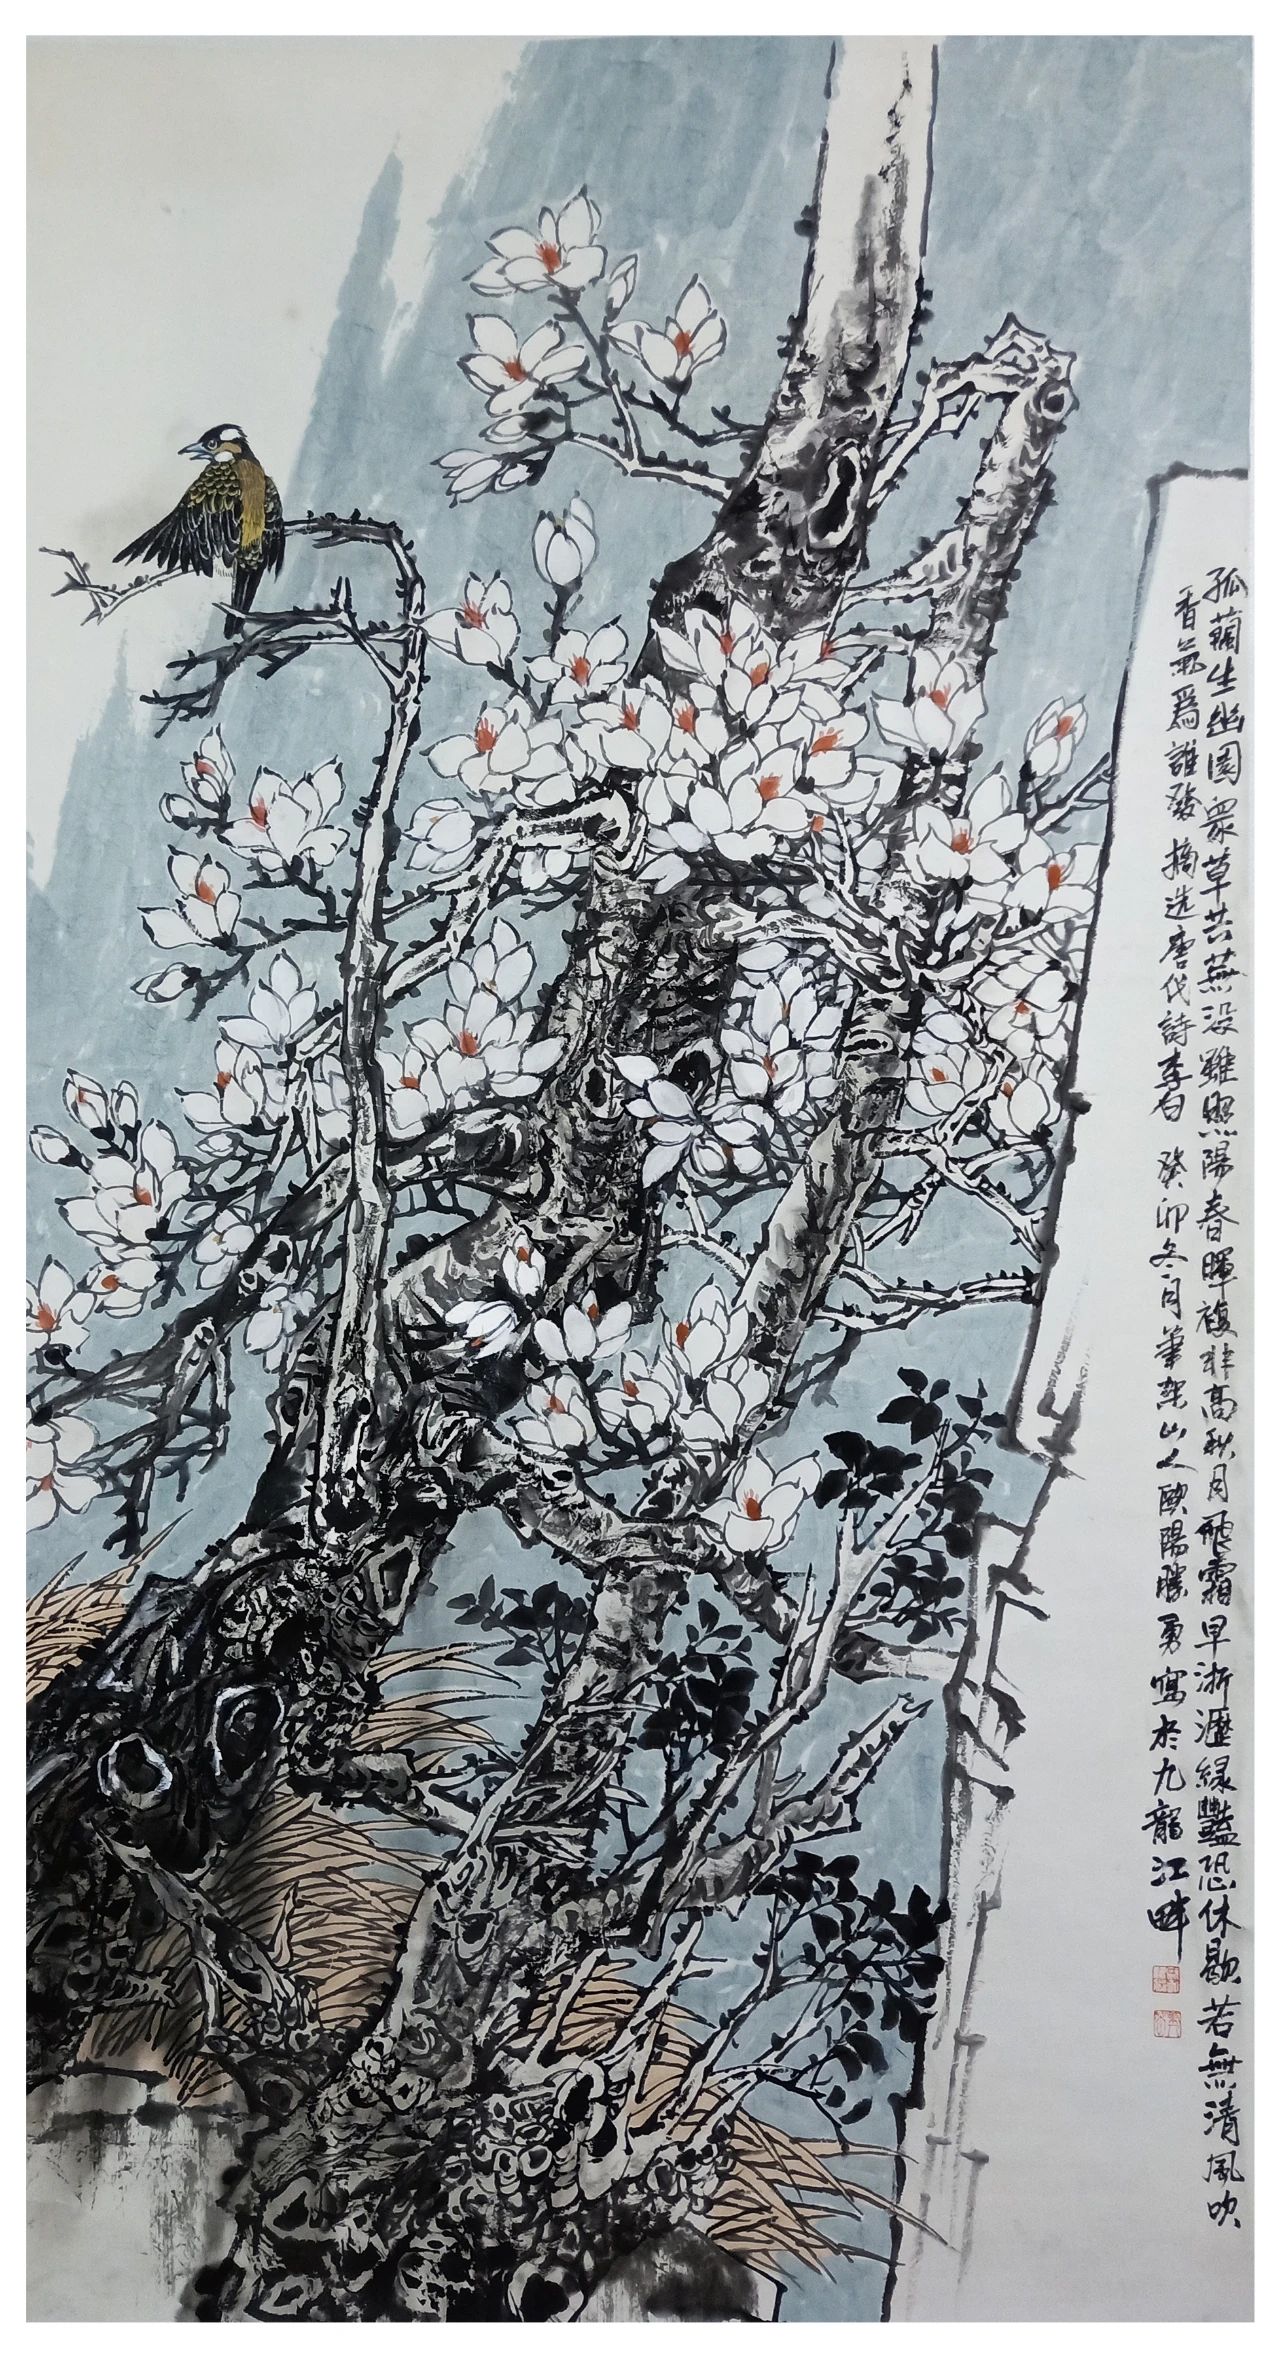 孤蘭生幽園衆草共蕪没雖照陽春暉複非高秋月飛霜早淅瀝緑豔恐休歇若無清風吹
香氣爲誰發摘选唐代詩李白 癸卯冬月筆架山人欧陽勝勇寫於九龍江畔